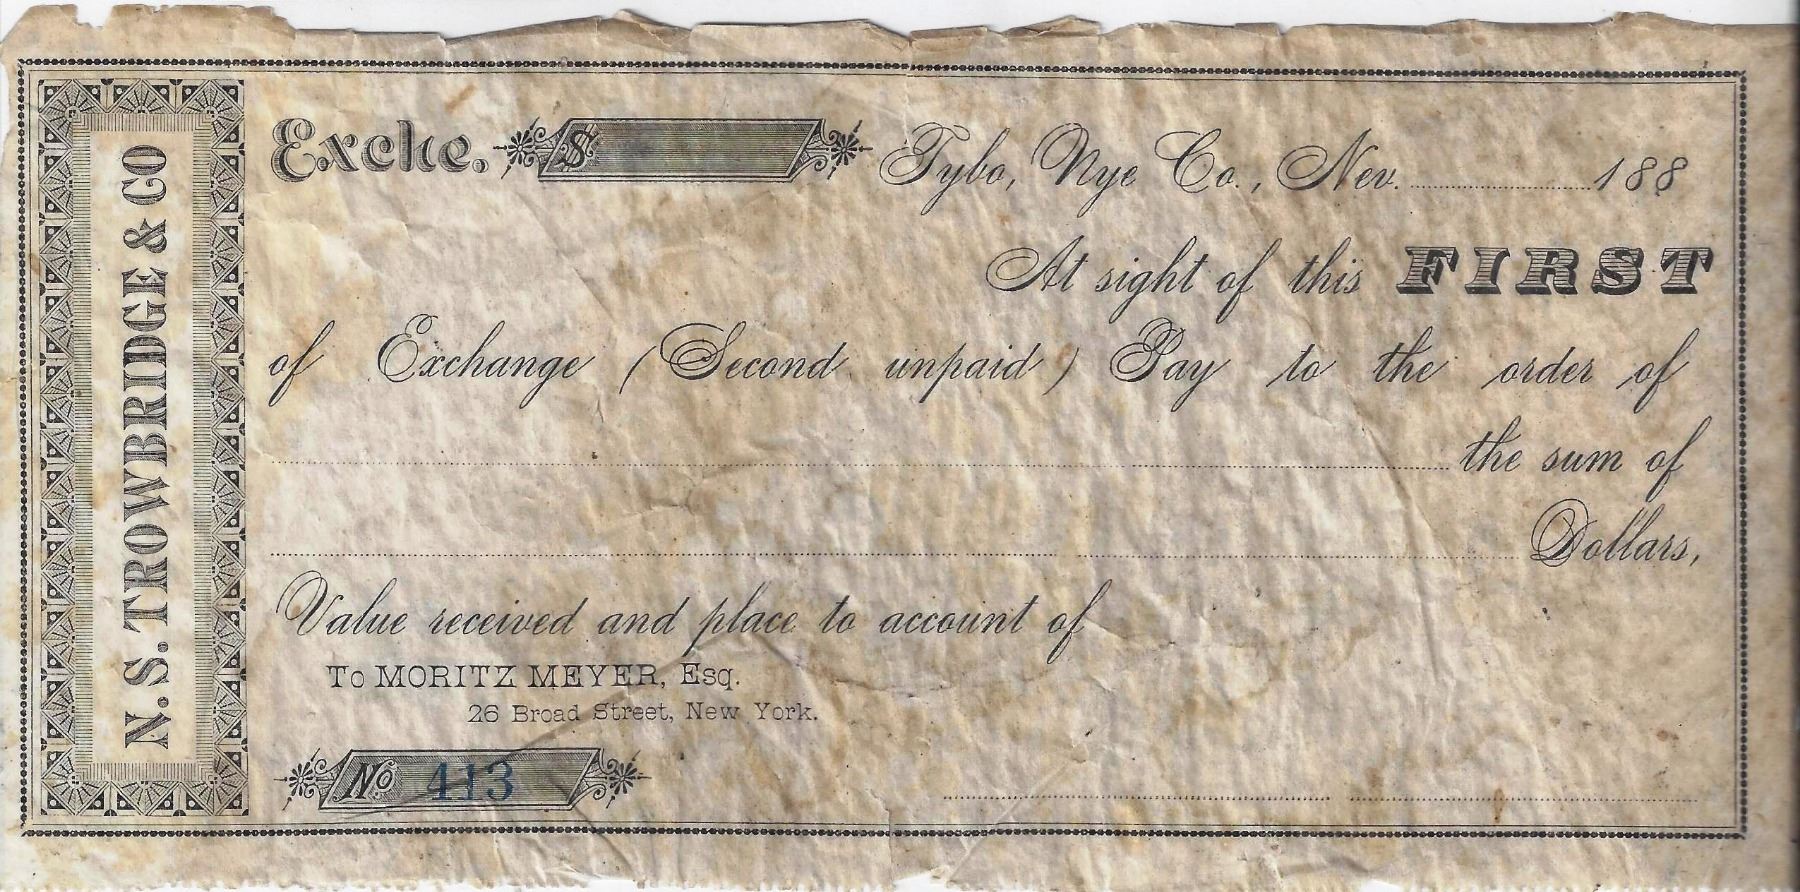 N.S. TROWBRIDGE & CO
Exche. $ Tybo, Nye Co., Nev. 188
At sight of this FIRST
of Exchange (Second unpaid) Pay to the order of
the sum of
Dollars,
Value received and place to account of
To MORITZ MEYER, Esq.
26 Broad Street, New York.
No 413